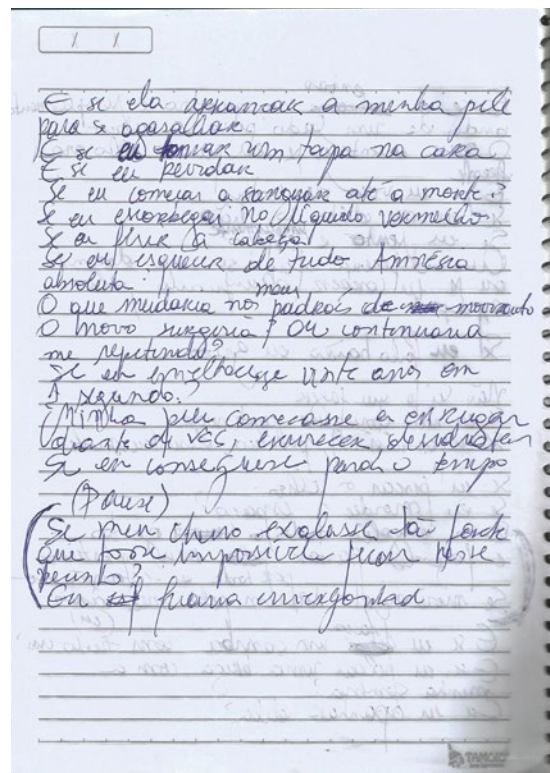 / /
E se ela arrancar a minha pele
para se agasalhar
E se eu tomar um tapa na cara
E se eu perder
Se eu começar a sangrar até a morte?
Se eu escorregar no líquido vermelho
Se eu ferir a cabeça
Se eu esquecer de tudo Amnésia
absoluta
mais
O que mudaria nos padrões de movimento
O novo surgiria? Ou continuaria
me repetindo?
Se eu envelhecesse vinte anos em
1 segundo?
Minha pele começasse a enrugar
diante de vcs, endurecer,
Se eu conseguisse parar o tempo
(Pausa)
Se meu cheiro exalasse tão forte
que fosse impossível ficar nesse
recinto?
Eu ficaria envergonhad
TAMOIO